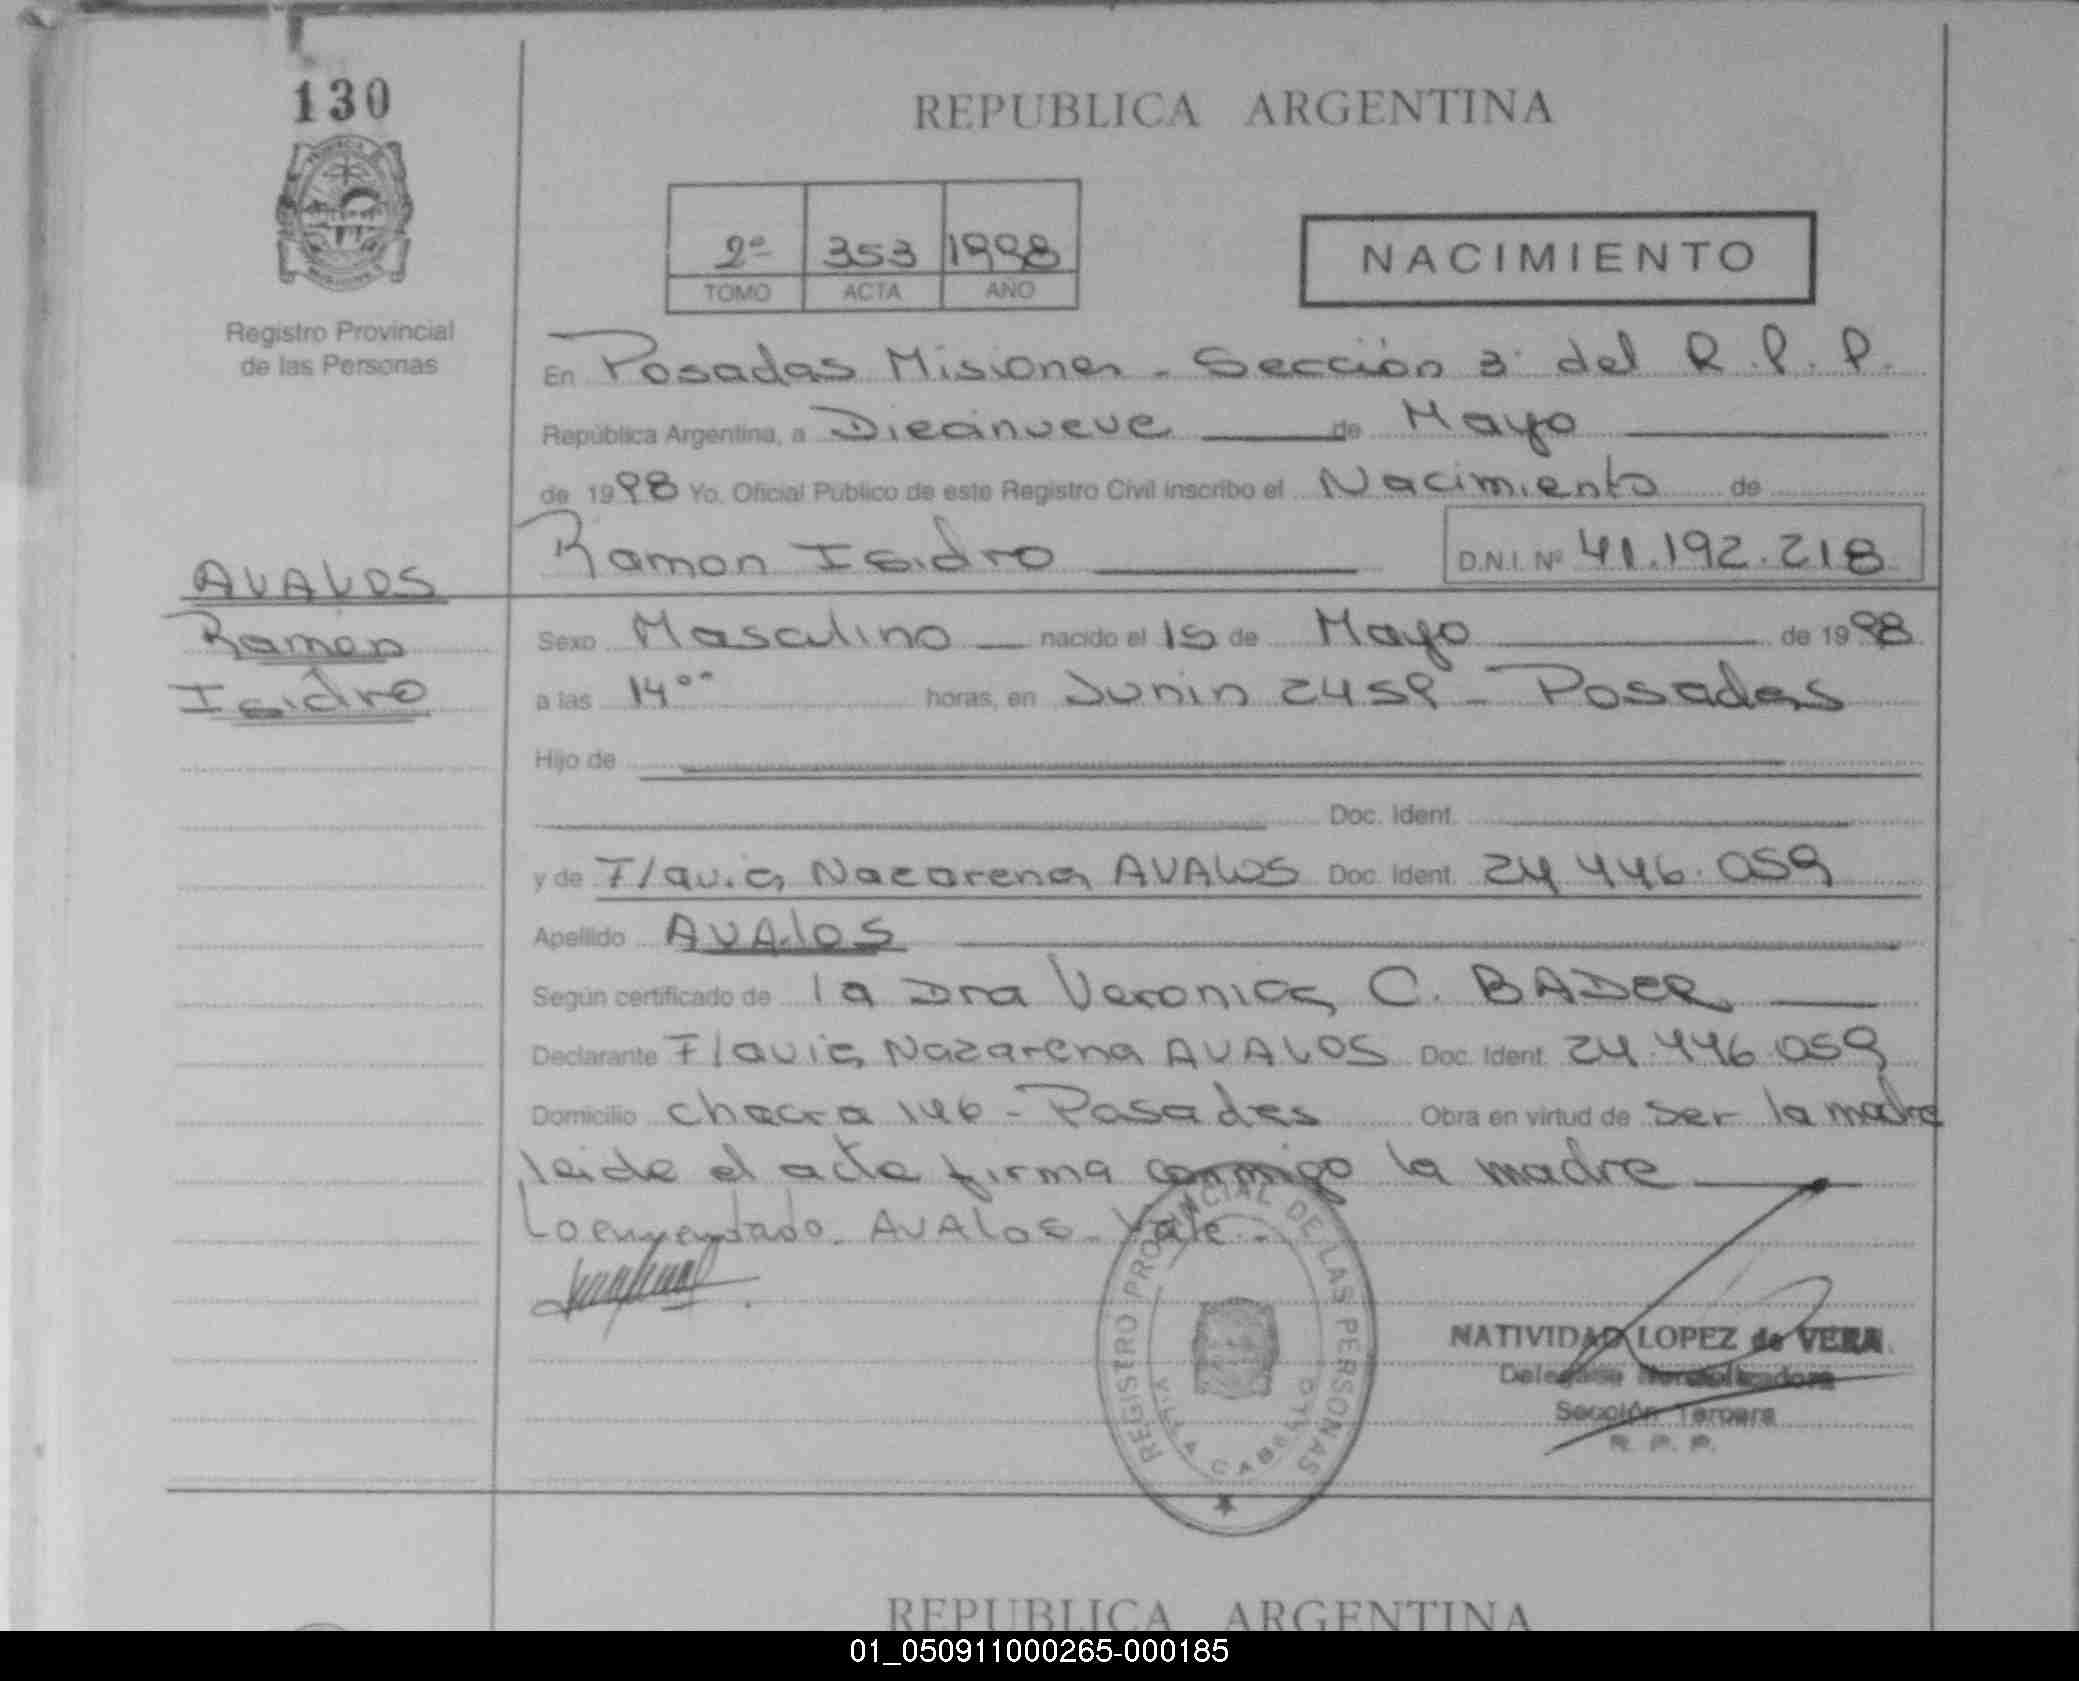 130
REPUBLICA ARGENTINA
2º 353 1998
TOMO ACTA AÑO
NACIMIENTO
Registro Provincial
de las Personas
En Posadas Misiones - Sección 3ª del R.P.P.
República Argentina, a Diecinueve de Mayo
de 1998 Yo, Oficial Público de este Registro Civil inscribo el Nacimiento de
Ramon Isidro D.N.I. Nº 41.192.218
AVALOS
Ramon
Isidro
Sexo Masculino nacido el 15 de Mayo de 1998
a las 14°° horas, en Junin 2459 - Posadas
Hijo de
Doc. Ident.
y de Flavia Nazarena AVALOS Doc. Ident. 24 446.059
Apellido AVALOS
Según certificado de la Dra Veronica C. BADER
Declarante Flavia Nazarena AVALOS Doc. Ident. 24.446.059
Domicilio chacra 146 - Posadas Obra en virtud de ser la madre
leida el acta firma conmigo la madre
Lo enmendado - AVALOS - Vale -
REGISTRO PROVINCIAL DE LAS PERSONAS
VILLA CABELLO
NATIVIDAD LOPEZ de VERA
Delegada
Sección Tercera
R. P. P.
REPUBLICA ARGENTINA
01_050911000265-000185